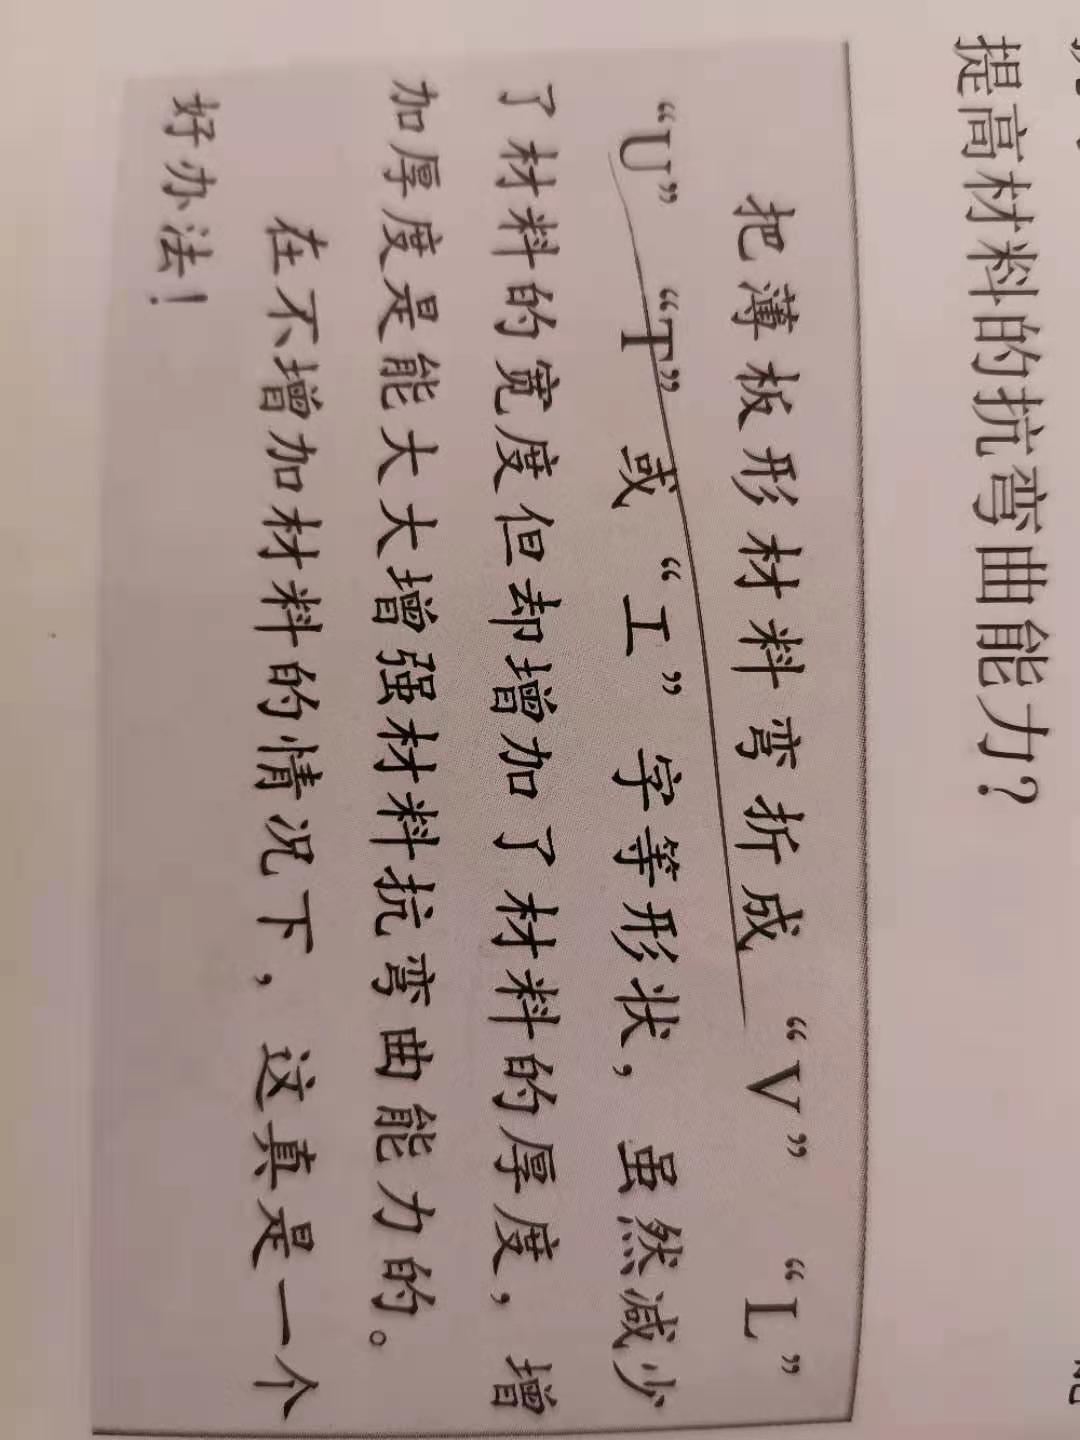 提高材料的抗弯曲能力？
把薄板形材料弯折成“V”“L”
“U”“T”或“工”字等形状，虽然减少
了材料的宽度但却增加了材料的厚度，增
加厚度是能大大增强材料抗弯曲能力的。
在不增加材料的情况下，这真是一个
好办法！